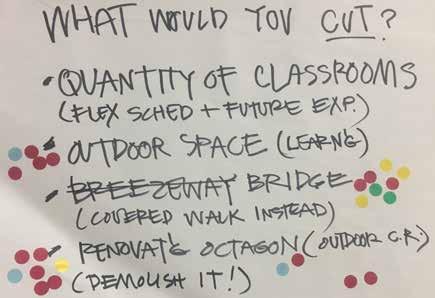 WHAT WOULD YOU CUT?
• QUANTITY OF CLASSROOMS
(FLEX SCHED + FUTURE EXP.)
• OUTDOOR SPACE (LEARN'G)
• BREEZEWAY BRIDGE
(COVERED WALK INSTEAD)
• RENOVAT'G OCTAGON (OUTDOOR C.R.)
(DEMOLISH IT!)